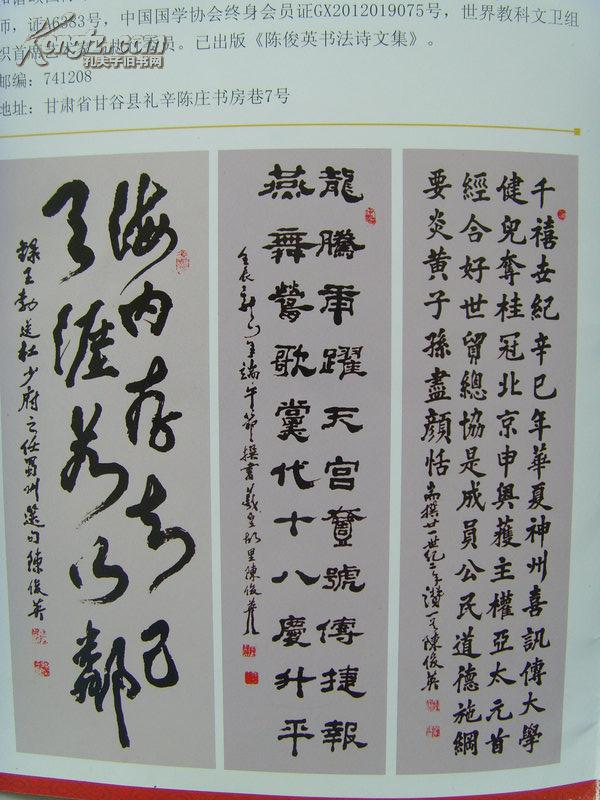 币，证A6383号，中国国学协会终身会员证GX2012019075号，世界教科文卫组
织首席
员。己出版《陈俊英书法诗文集》。
邮编：741208
地址：甘肃省甘谷县礼辛陈庄书房巷7号
孔夫子旧书网
千禧世紀辛巳年華夏神州喜訊傳大學
健兒奪桂冠北京申奧獲主權亞太元首
經合好世貿總協是成員公民道德施綱
要炎黃子孫盡顔恬
龍騰甫躍天宮
號傳捷報
燕舞鶯歌黨代十八慶升平
壬辰
端午節撰書羲皇故里陳俊英
海内存知己
天涯若比鄰
録王勃送杜少府之任蜀州選句陳俊英